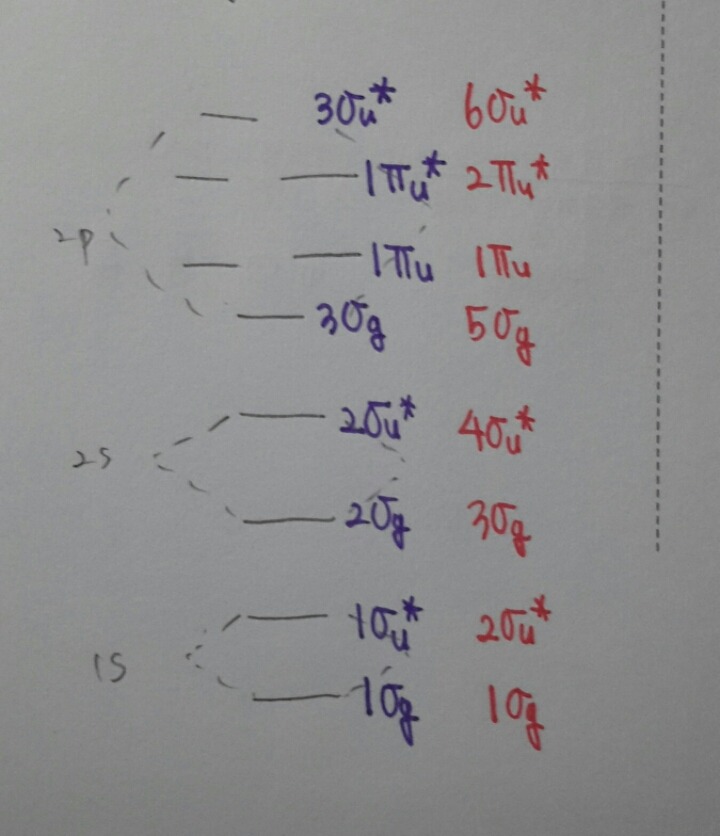 3σu* 6σu*
1πu* 2πu*
2p
1πu 1πu
3σg 5σg
2σu* 4σu*
2s
2σg 3σg
1σu* 2σu*
1s
1σg 1σg